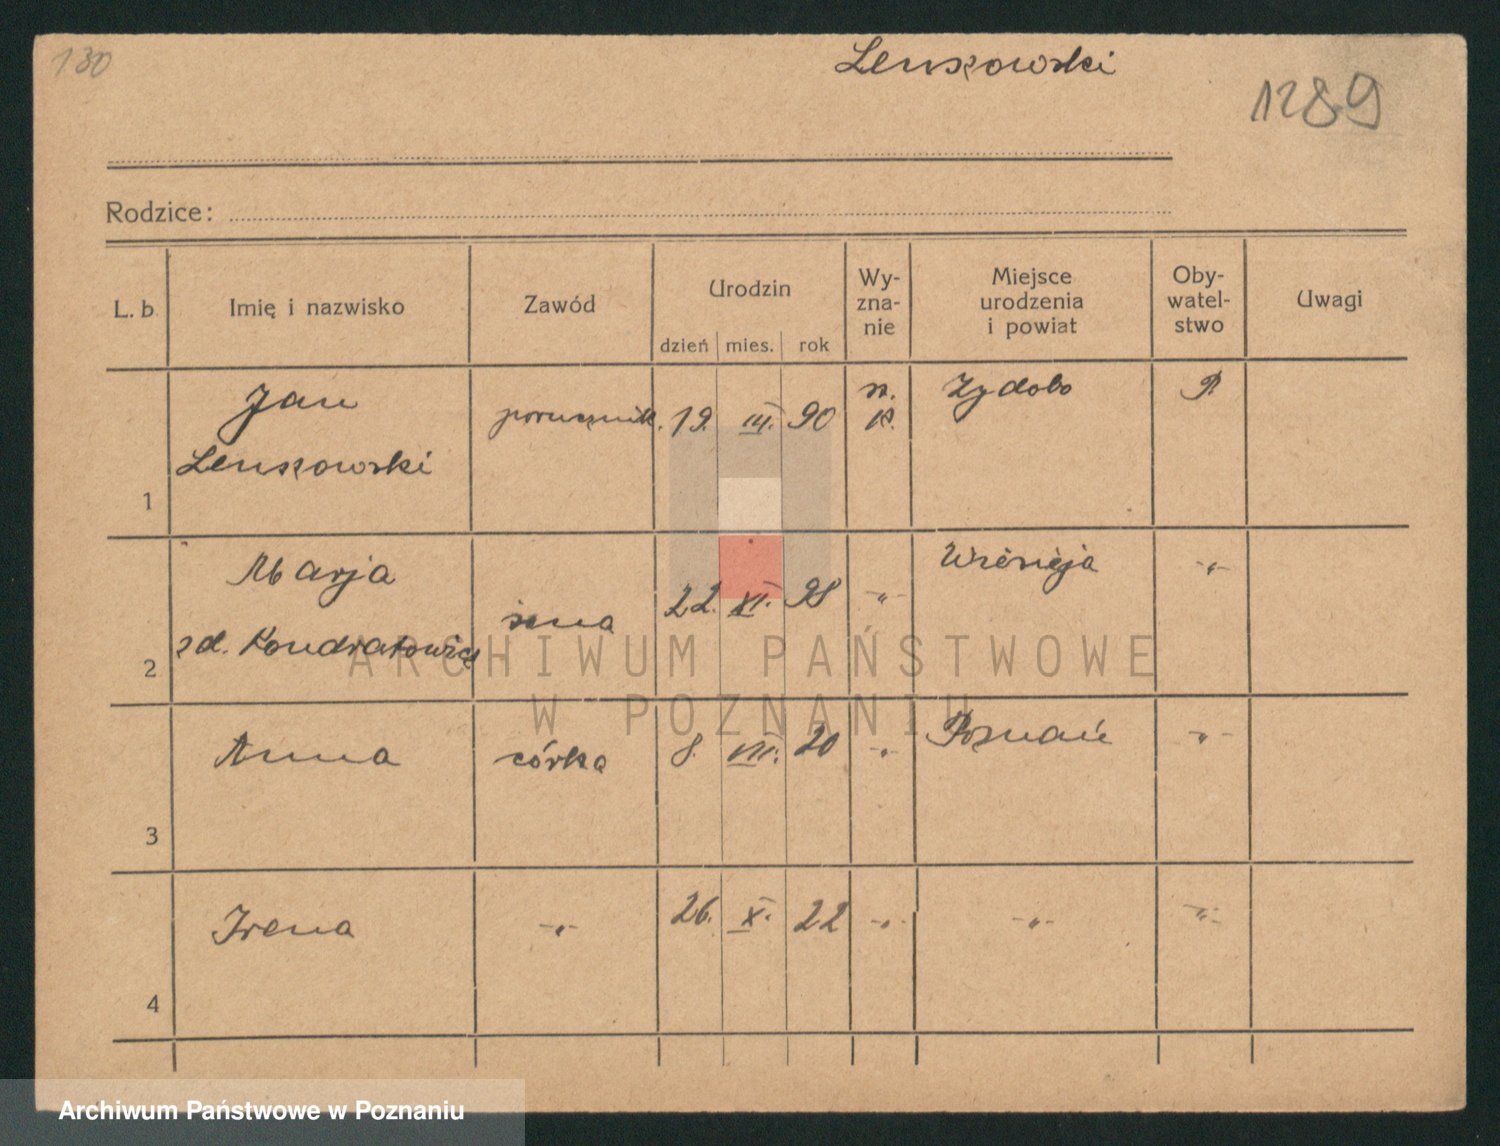 130
Lenszowski
1289
Rodzice:
L. b.
Imię i nazwisko
Zawód
Urodzin
dzień mies. rok
Wy-
zna-
nie
Miejsce
urodzenia
i powiat
Oby-
watel-
stwo
Uwagi
1
Jan
Lenszowski
porucznik. 19. III. 90
rz.
k.
Żydowo
P.
2
Marja
zd. Kondratowicz
żena
22. XI. 98 -"-
Września
-"-
3
Anna
córka
8. VIII. 20 -"-
Poznań
-"-
4
Irena
-"-
26. X. 22 -"-
-"-
-"-
ARCHIWUM PAŃSTWOWE
W POZNANIU
Archiwum Państwowe w Poznaniu